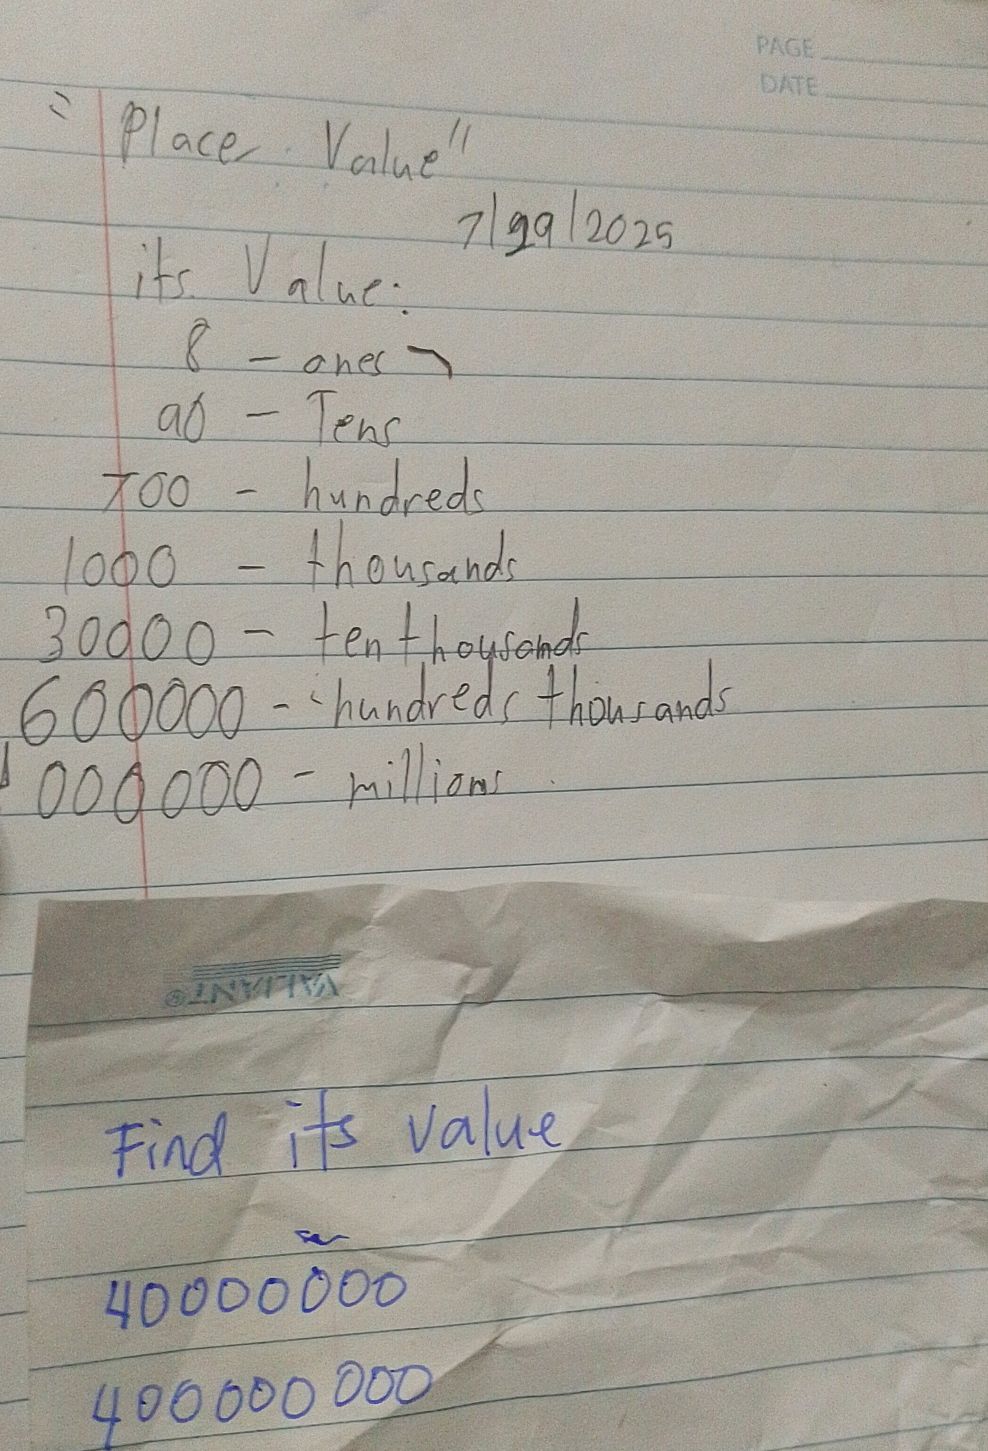 PAGE
DATE
"Place Value"
7/29/2025
its Value:
8 - ones
90 - Tens
700 - hundreds
1000 - thousands
30000 - ten thousands
600000 - hundreds thousands
000000 - millions
VALIANT®
Find its value
40000000
400000000